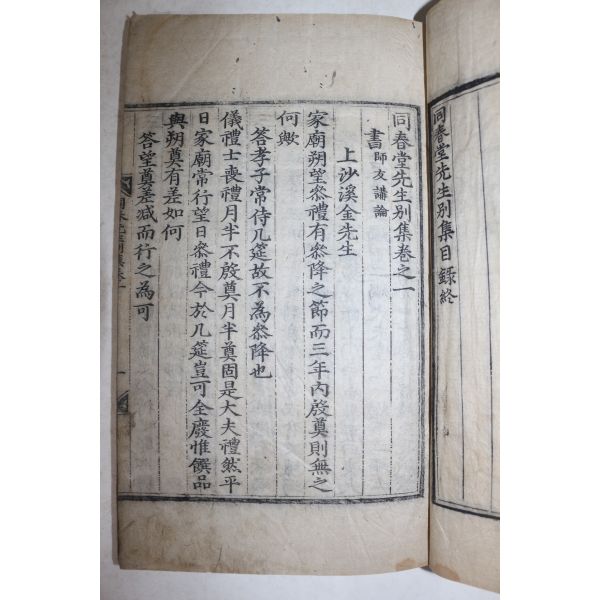 同春堂先生別集目錄終
同春堂先生別集卷之一
書 師友講論
上沙溪金先生
家廟朔望叅禮有叅降之節而三年內殷奠則無之
何歟
答孝子常侍几筵故不為叅降也
儀禮士喪禮月半不殷奠月半奠固是大夫禮然平
日家廟常行望日叅禮今於几筵豈可全廢惟饌品
與朔奠有差如何
答望奠差減而行之為可